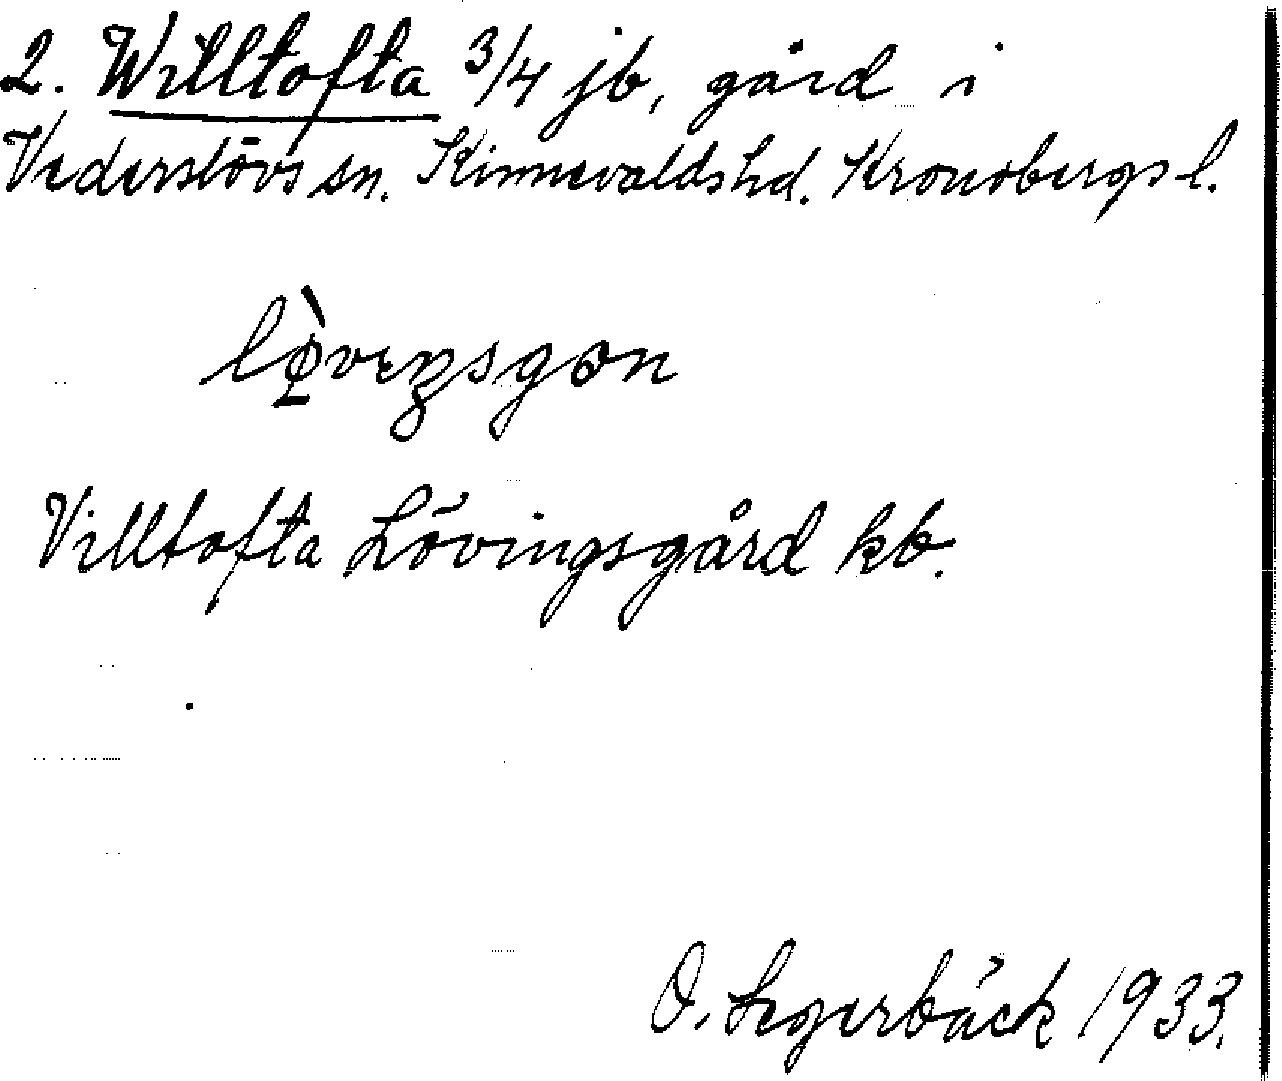 2. Willtofta 3/4 jb, gård i
Vederslövs sn. Kinnevalds hd. Kronobergs l.
lø̀veŋsgɔn
Villtofta Lövingsgård kb.
O. Segerbäck 1933.